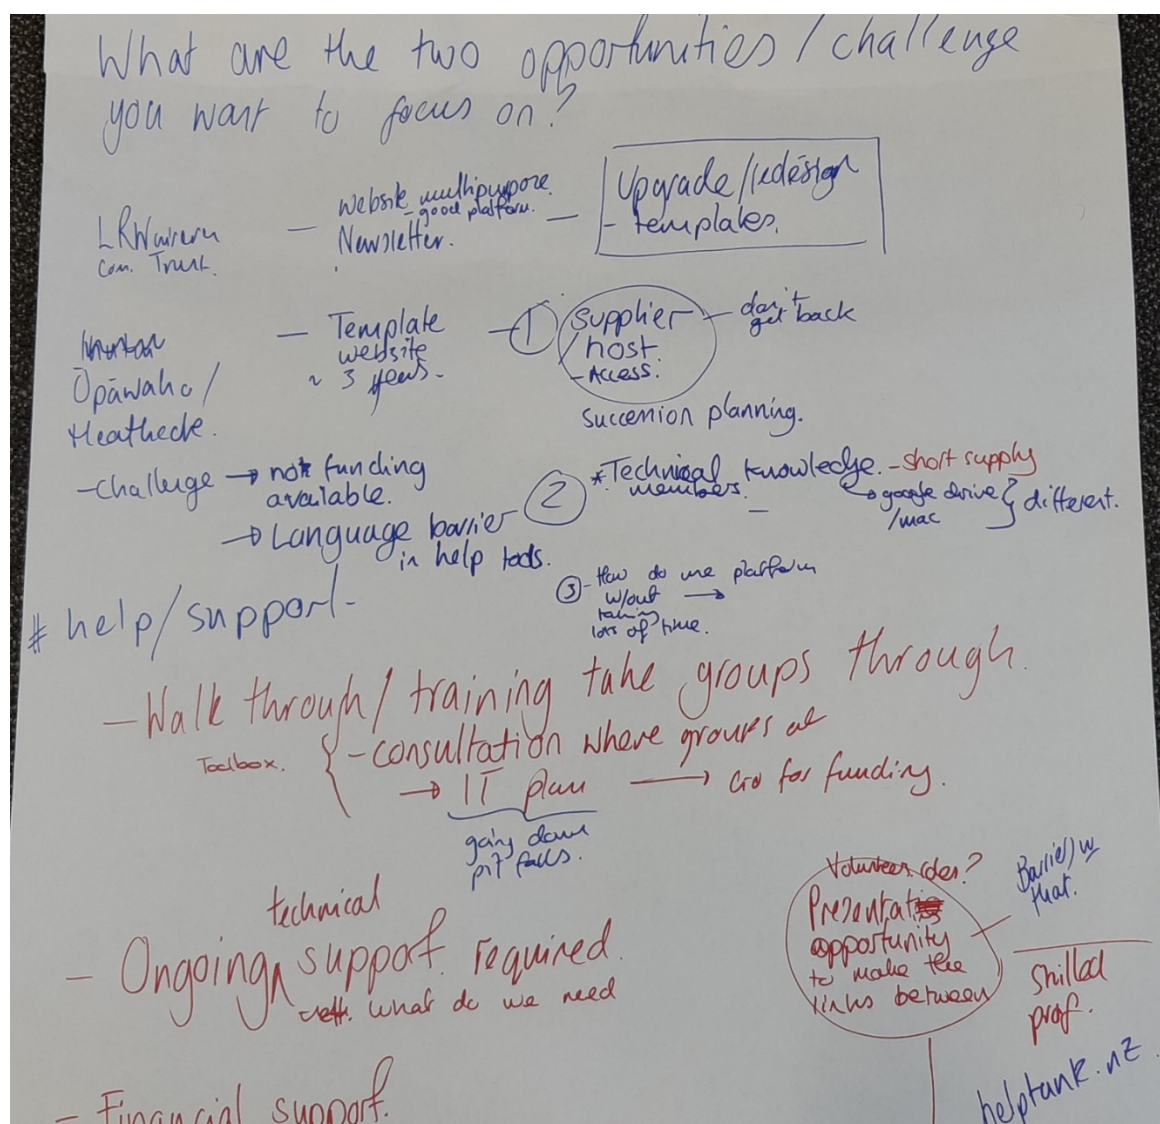 What are the two opportunities / challenge
you want to focus on?
LRWairewa
Com. Trust.
— Website multipurpose.
- good platform.
Newsletter.
— Upgrade/redesign
- templates.
Ōpāwaho /
Heathecke.
— Template
website
~ 3 years.
— 1 Supplier
/ host.
- Access.
— don't
get back
Succession planning.
- Challenge → not funding
available.
→ Language barrier
in help tools.
2 * Technical knowledge. - short supply
members.
→ google drive
/mac } different.
3 - How do we platform
w/out →
taking
lots of time.
# help/support -
- Walk through / training take groups through.
Toolbox. { - consultation where groups at
→ IT plan → Go for funding.
going down
pit falls.
technical
- Ongoing ^ support required.
what do we need
Volunteer roles?
Presentatio
opportunity
to make the
links between
Barriers w
that.
Skilled
prof.
helptank.nz
- Financial support.